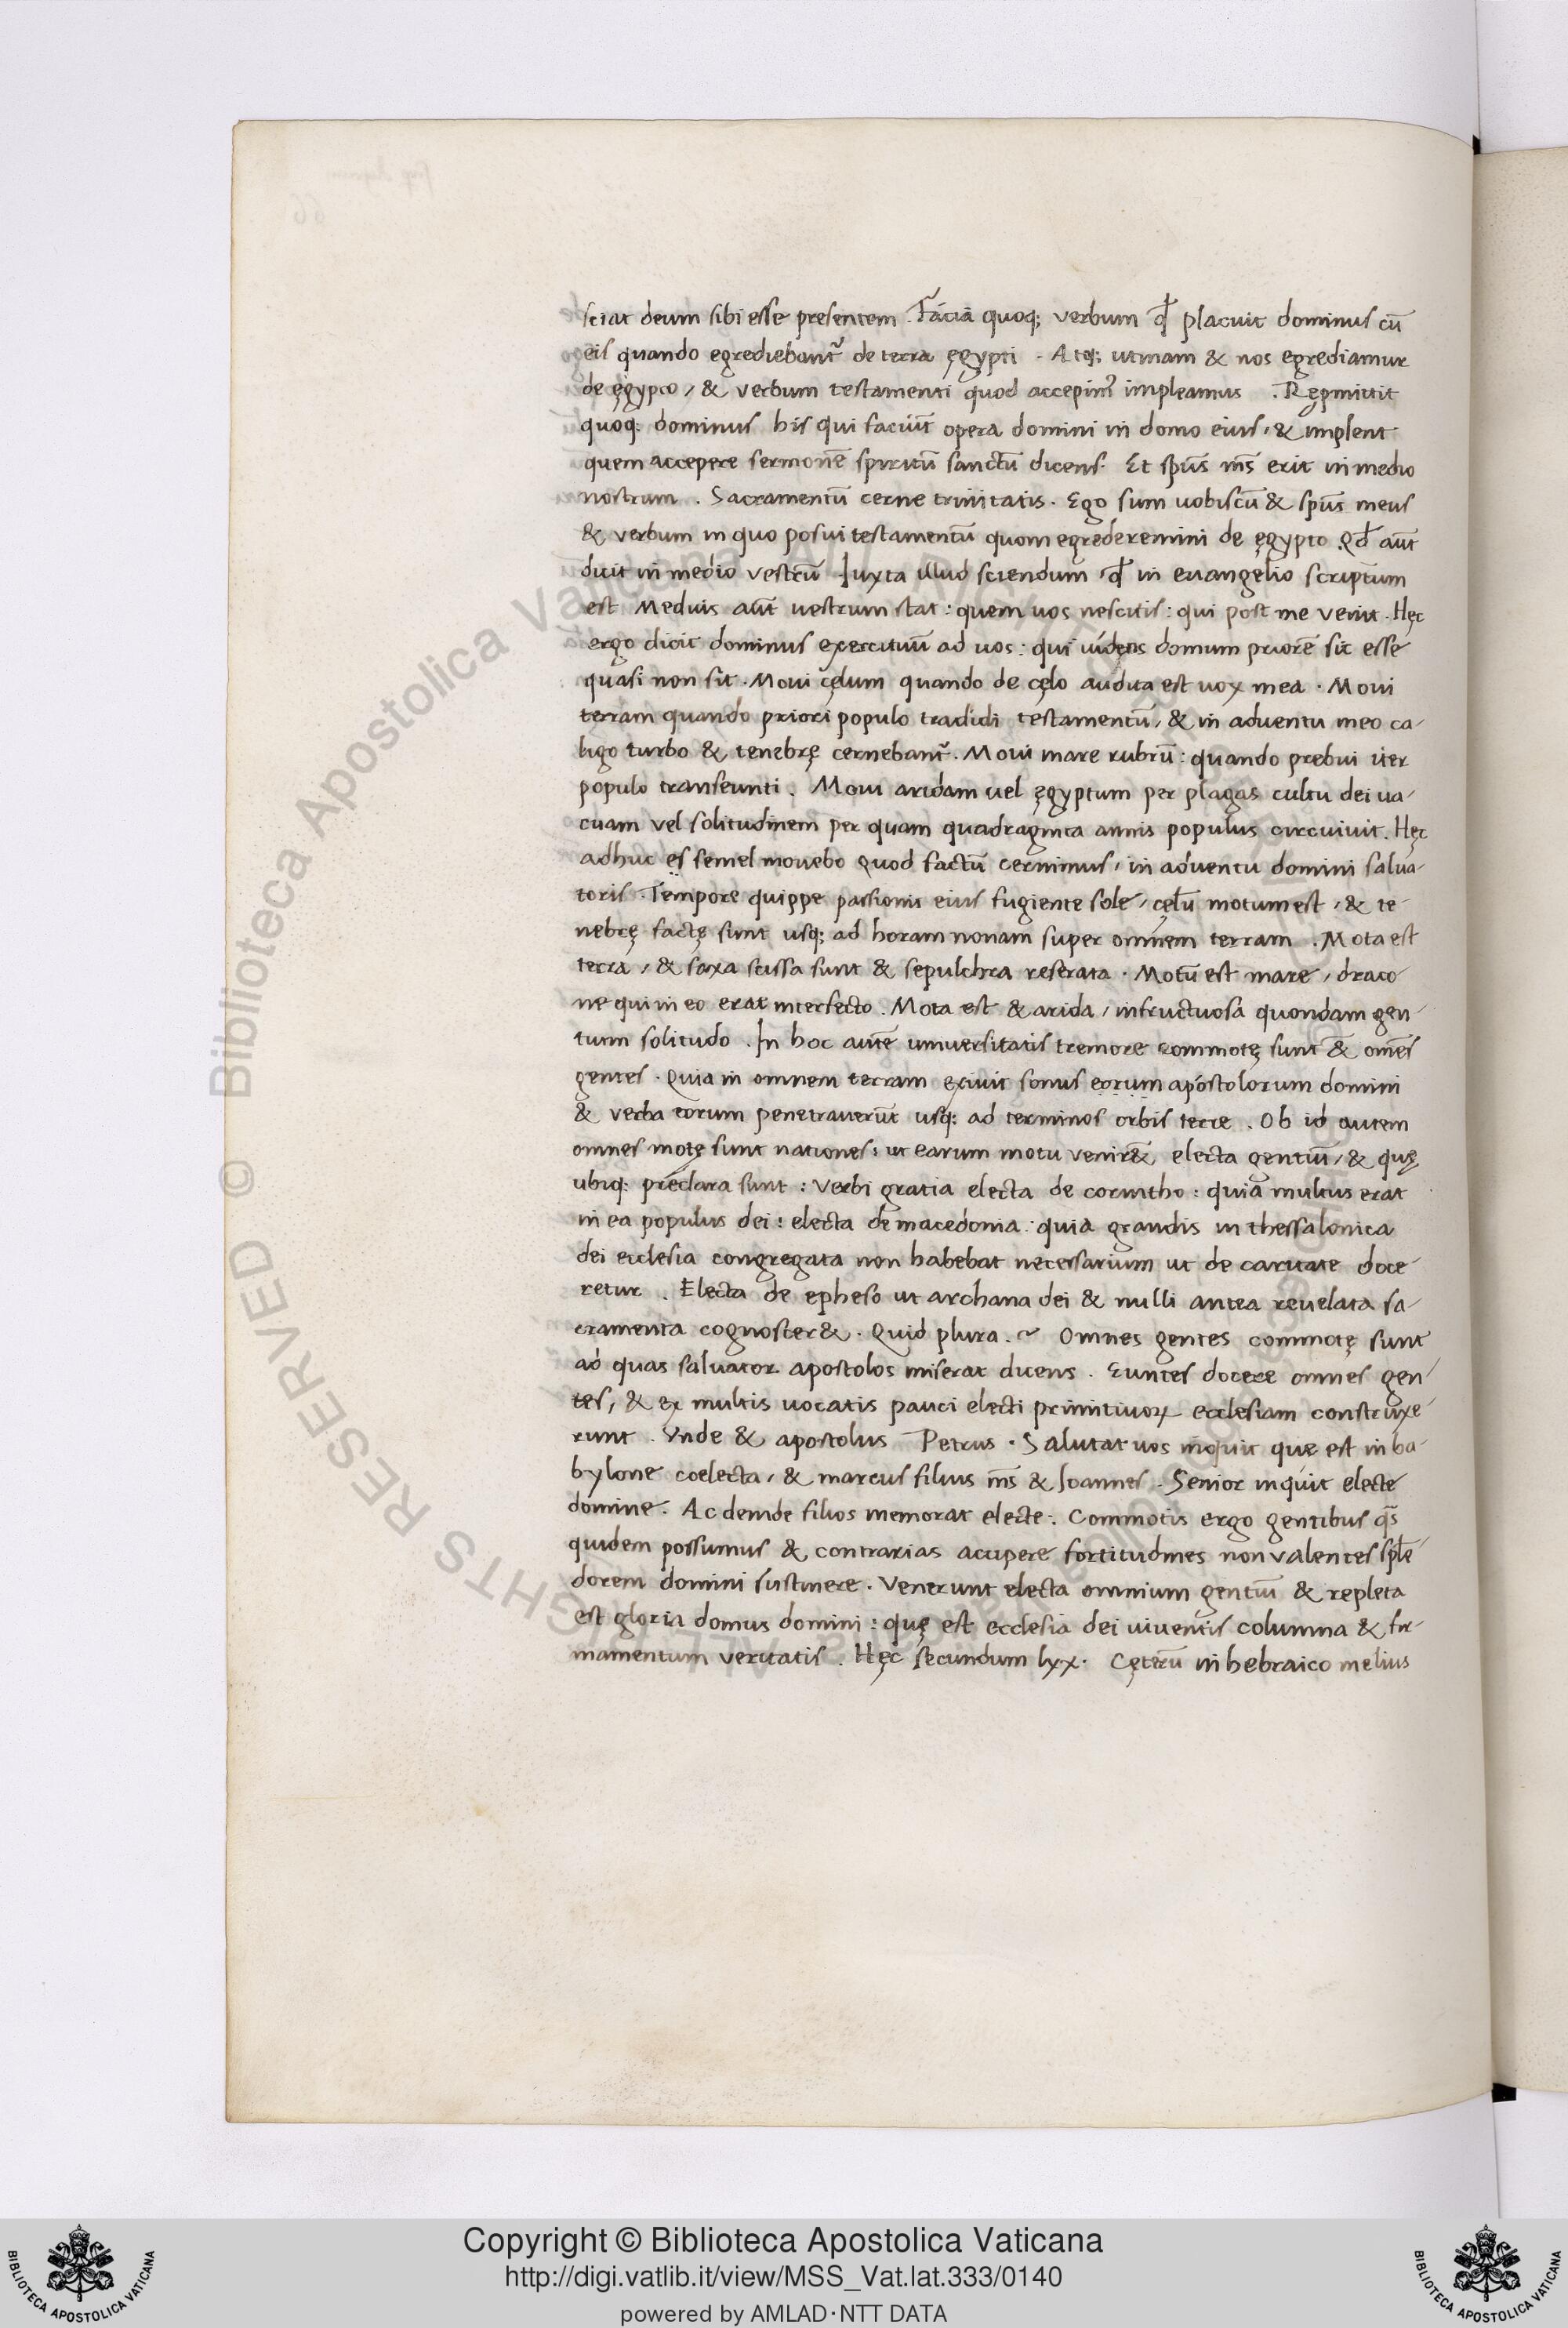 sciat deum sibi esse presentem . Faciā quoq; verbum qđ placuit dominus cū
eis quando egrediebant᷑ de terra ęgypti . Atq; utinam & nos egrediamur
de ęgypto / & verbum testamenti quod accepim᷑ impleamus . Repmittit
quoq: dominus his qui faciūt opera domini in domo eius / & implent
quem accepere sermonē spiritū sanctū dicens . Et sp̄us m̄s erit in medio
nostrum . Sacramentū cerne trinitatis . Ego sum uobiscū & sp̄us meus
& verbum in quo posui testamentū quom egrederemini de ęgypto . Qđ aūt
dicit in medio vestrū Iuxta illud sciendum / qđ in euangelio scriptum
est Medius aūt uestrum stat : quem uos nescitis : qui post me venit . Hęc
ergo dicit dominus exercituū ad uos : qui uidens domum priorē sic esse
quasi non sit . Moui cęlum quando de cęlo audita est uox mea . Moui
terram quando priori populo tradidi testamentū / & in aduentu meo ca-
ligo turbo & tenebrę cernebant᷑ . Moui mare rubrū : quando prebui iter
populo transeunti . Moui aridam uel ęgyptum per plagas cultu dei ua-
cuam vel solitudinem per quam quadraginta annis populus circuiuit . Hęc
adhuc es semel mouebo quod factū cerminus / in aduentu domini salua-
toris . Tempore quippe passionis eius fugiente sole / cęlū motum est / & te-
nebrę factę sunt usq; ad horam nonam super omnem terram . Mota est
terra / & saxa scissa sunt & sepulchra reserata . Motū est mare / draco-
ne qui in eo erat interfecto . Mota est & arida / infructuosa quondam gen-
tium solitudo . In hoc autē uniuersitatis tremore commotę sunt & om̄es
gentes . Quia in omnem terram exiuit sonus eorum apostolorum domini
& verba eorum penetrauerūt usq: ad terminos orbis terre . Ob id autem
omnes motę sunt nationes : ut earum motu venir& electa gentiū / & quę
ubiq: preclara sunt : Verbi gratia electa de corintho : quia multus erat
in ea populus dei : electa de macedonia : quia grandis in thessalonica
dei ecclesia congregata non habebat necessarium ut de caritate doce-
retur . Electa de epheso ut archana dei & nulli antea reuelata sa-
cramenta cognoscer& . Quid plura . ~ Omnes gentes commotę sunt
ad quas saluator apostolos miserat dicens . Euntes docete omnes gen-
tes , & ex multis uocatis pauci electi primitiuoꝝ ecclesiam construxe-
runt . Vnde & apostolus Petrus . Salutat uos inquit que est in ba-
bylone coelecta / & marcus filius m̄s & Ioannes . Senior inquit electe
domine . Ac deinde filios memorat electe . Commotis ergo gentibus q̄s
quidem possumus & contrarias accipere fortitudines non valentes splē-
dorem domini sustinere . Venerunt electa omnium gentiū & repleta
est gloria domus domini : quę est ecclesia dei uiuentis columna & fir-
mamentum veritatis . Hęc secundum lxx . Cęterū in hebraico melius
© Biblioteca Apostolica Vaticana
ALL RIGHTS RESERVED
BIBLIOTECA APOSTOLICA VATICANA
Copyright © Biblioteca Apostolica Vaticana
http://digi.vatlib.it/view/MSS_Vat.lat.333/0140
powered by AMLAD·NTT DATA
BIBLIOTECA APOSTOLICA VATICANA